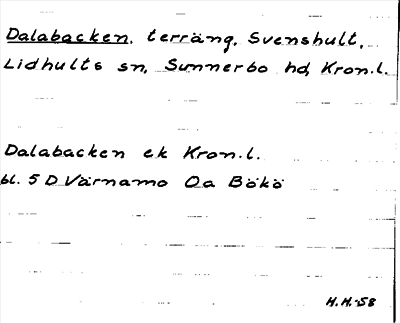 Dalabacken, terräng, Svenshult,
Lidhults sn, Sunnerbo hd, Kron.l.
Dalabacken ek Kron.l.
bl. 5 D Värnamo Oa Bökö
H.H.-58